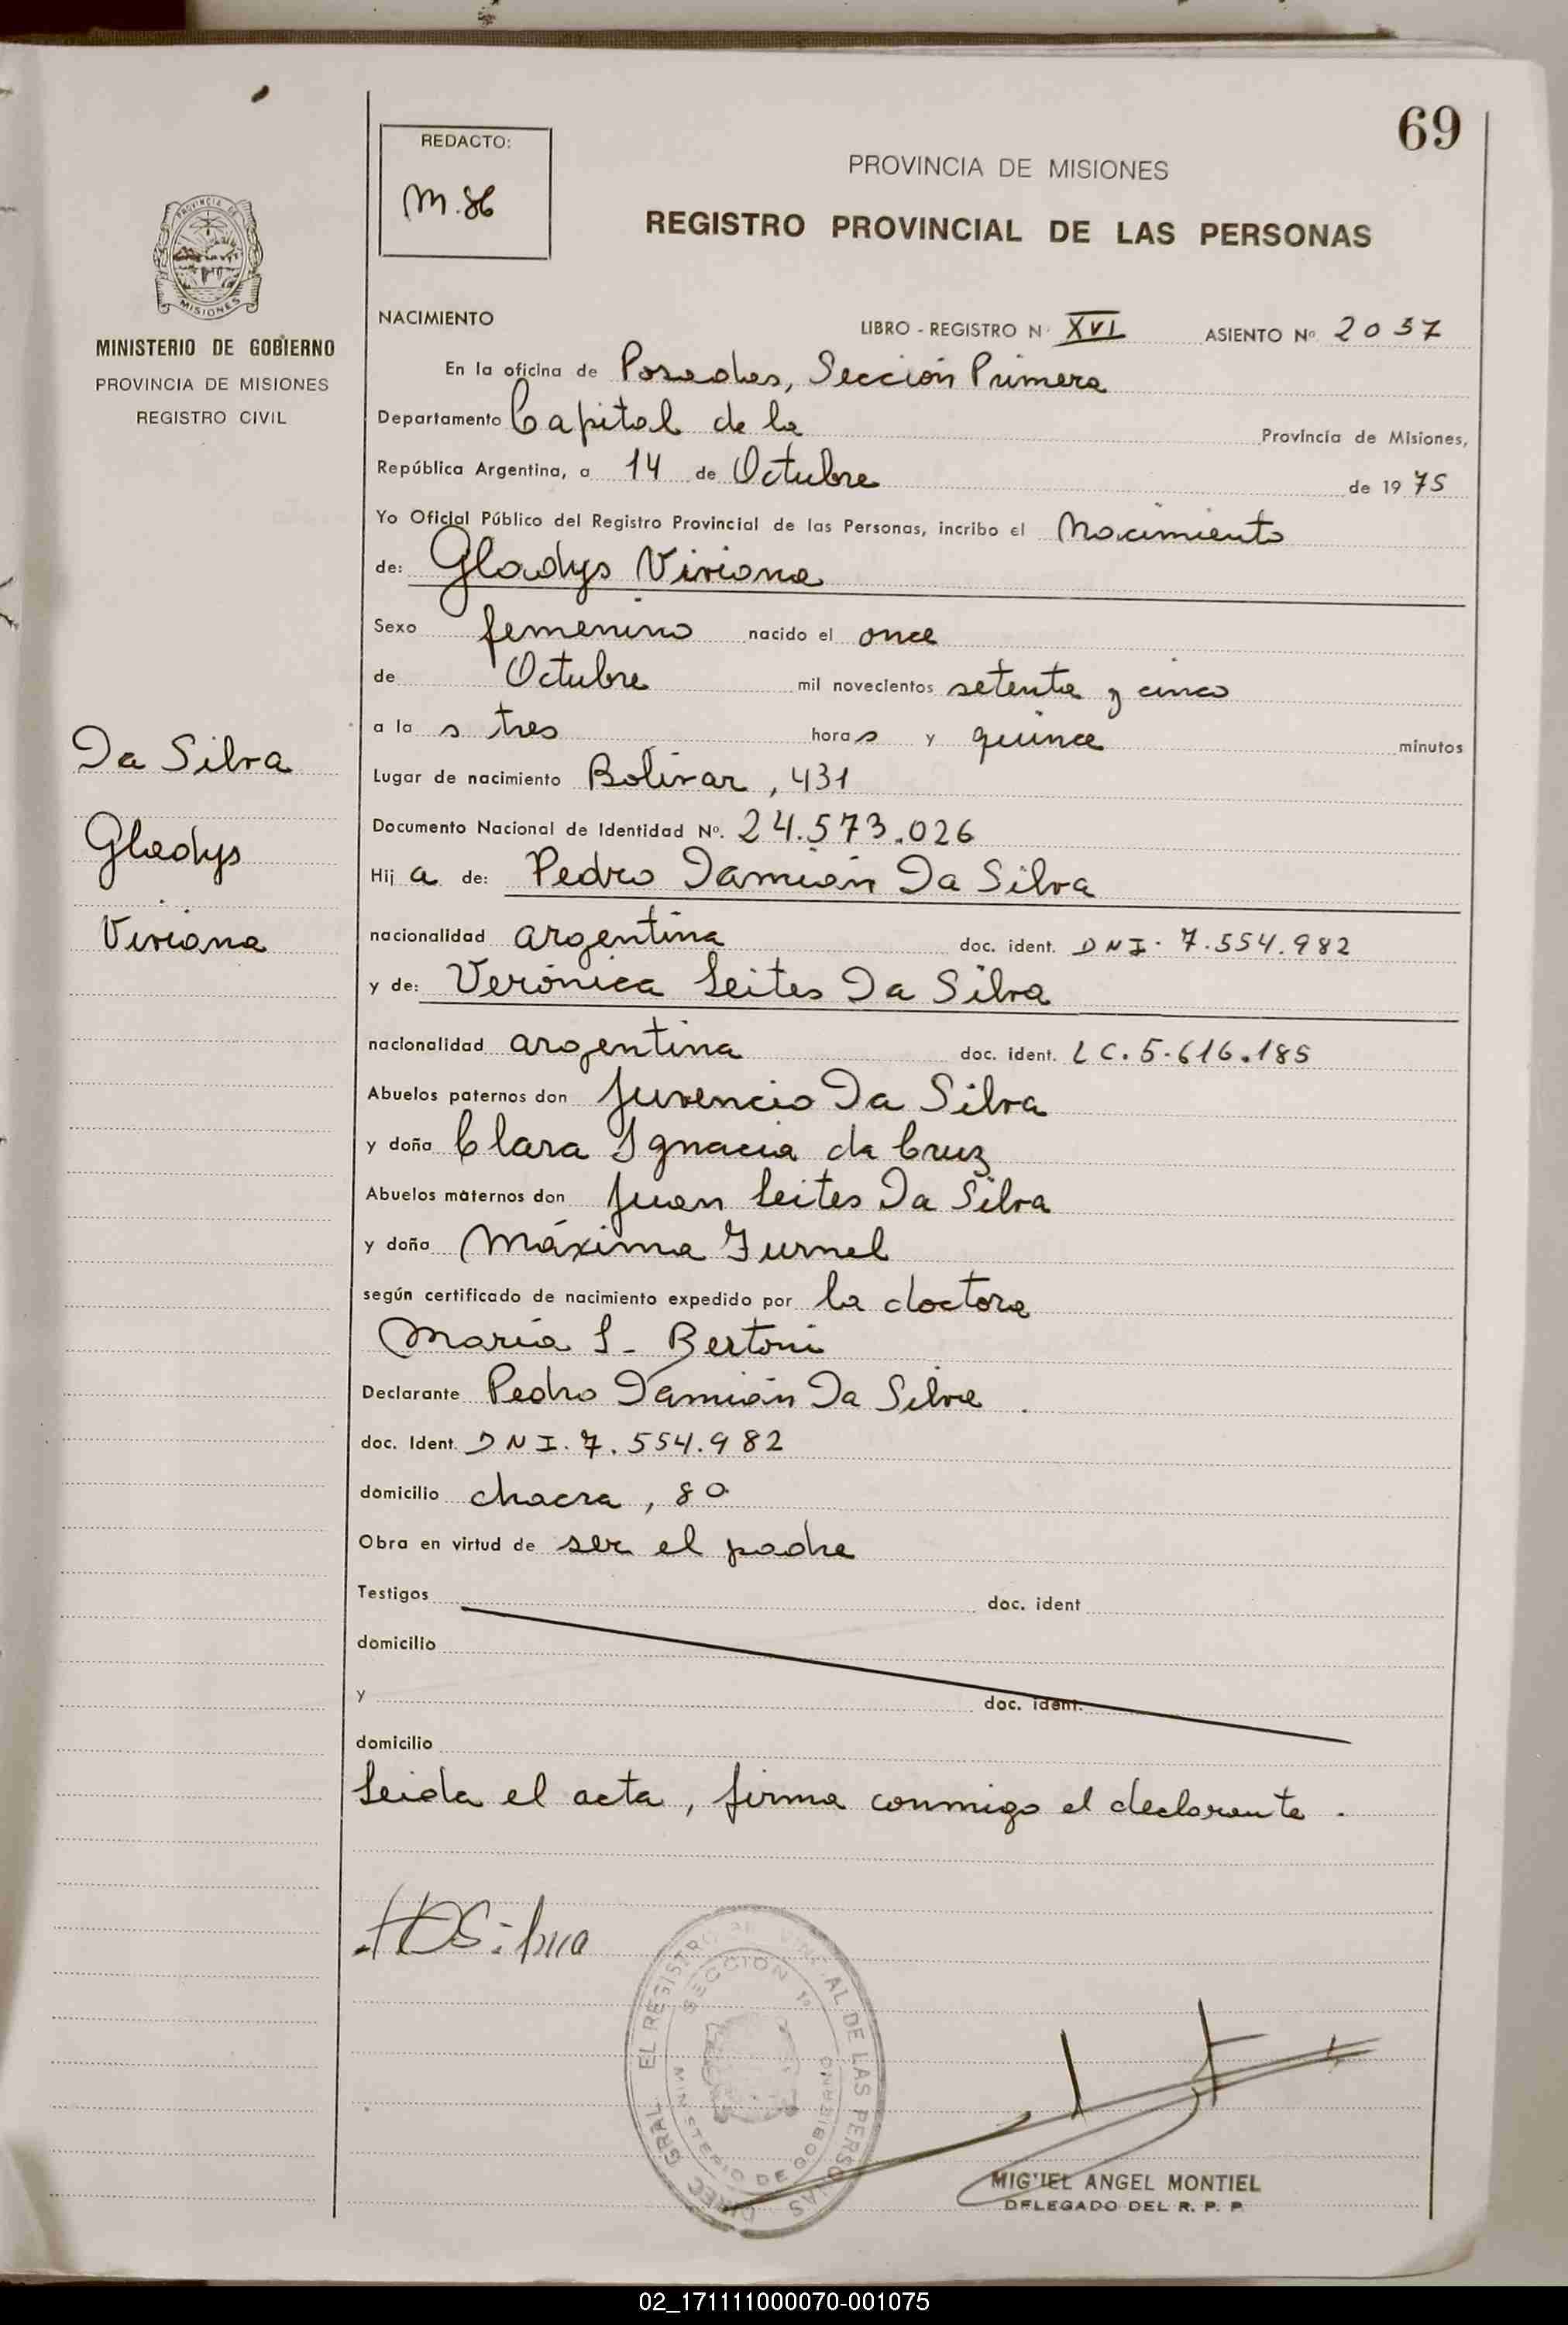 69
REDACTO:
M.86
PROVINCIA DE MISIONES
REGISTRO PROVINCIAL DE LAS PERSONAS
PROVINCIA DE
MISIONES
MINISTERIO DE GOBIERNO
PROVINCIA DE MISIONES
REGISTRO CIVIL
NACIMIENTO
LIBRO - REGISTRO N· XVI ASIENTO Nº 2037
En la oficina de Posadas, Sección Primera
Departamento Capital de la Provincia de Misiones,
República Argentina, a 14 de Octubre de 1975
Yo Oficial Público del Registro Provincial de las Personas, incribo el Nacimiento
de: Gladys Viviana
Sexo femenino nacido el once
de Octubre mil novecientos setenta y cinco
a la s tres horas y quince minutos
Da Silva
Gladys
Viviana
Lugar de nacimiento Bolívar, 431
Documento Nacional de Identidad Nº. 24.573.026
Hij a de: Pedro Damián Da Silva
nacionalidad argentina doc. ident. DNI· 7.554.982
y de: Verónica Leites Da Silva
nacionalidad argentina doc. ident. LC.5.616.185
Abuelos paternos don Juvencio Da Silva
y doña Clara Ignacia da Cruz
Abuelos maternos don Juan Leites Da Silva
y doña Máxima Furnel
según certificado de nacimiento expedido por la doctora
María S. Bertoni
Declarante Pedro Damián Da Silva .
doc. Ident. DNI. 7.554.982
domicilio chacra, 80
Obra en virtud de ser el padre
Testigos doc. ident
domicilio
y doc. ident.
domicilio
Leida el acta, firma conmigo el declarante .
DIREC. GRAL. EL REGISTRO PROVINCIAL DE LAS PERSONAS
SECCION 1ª
MINISTERIO DE GOBIERNO
MIGUEL ANGEL MONTIEL
DELEGADO DEL R. P. P.
02_171111000070-001075